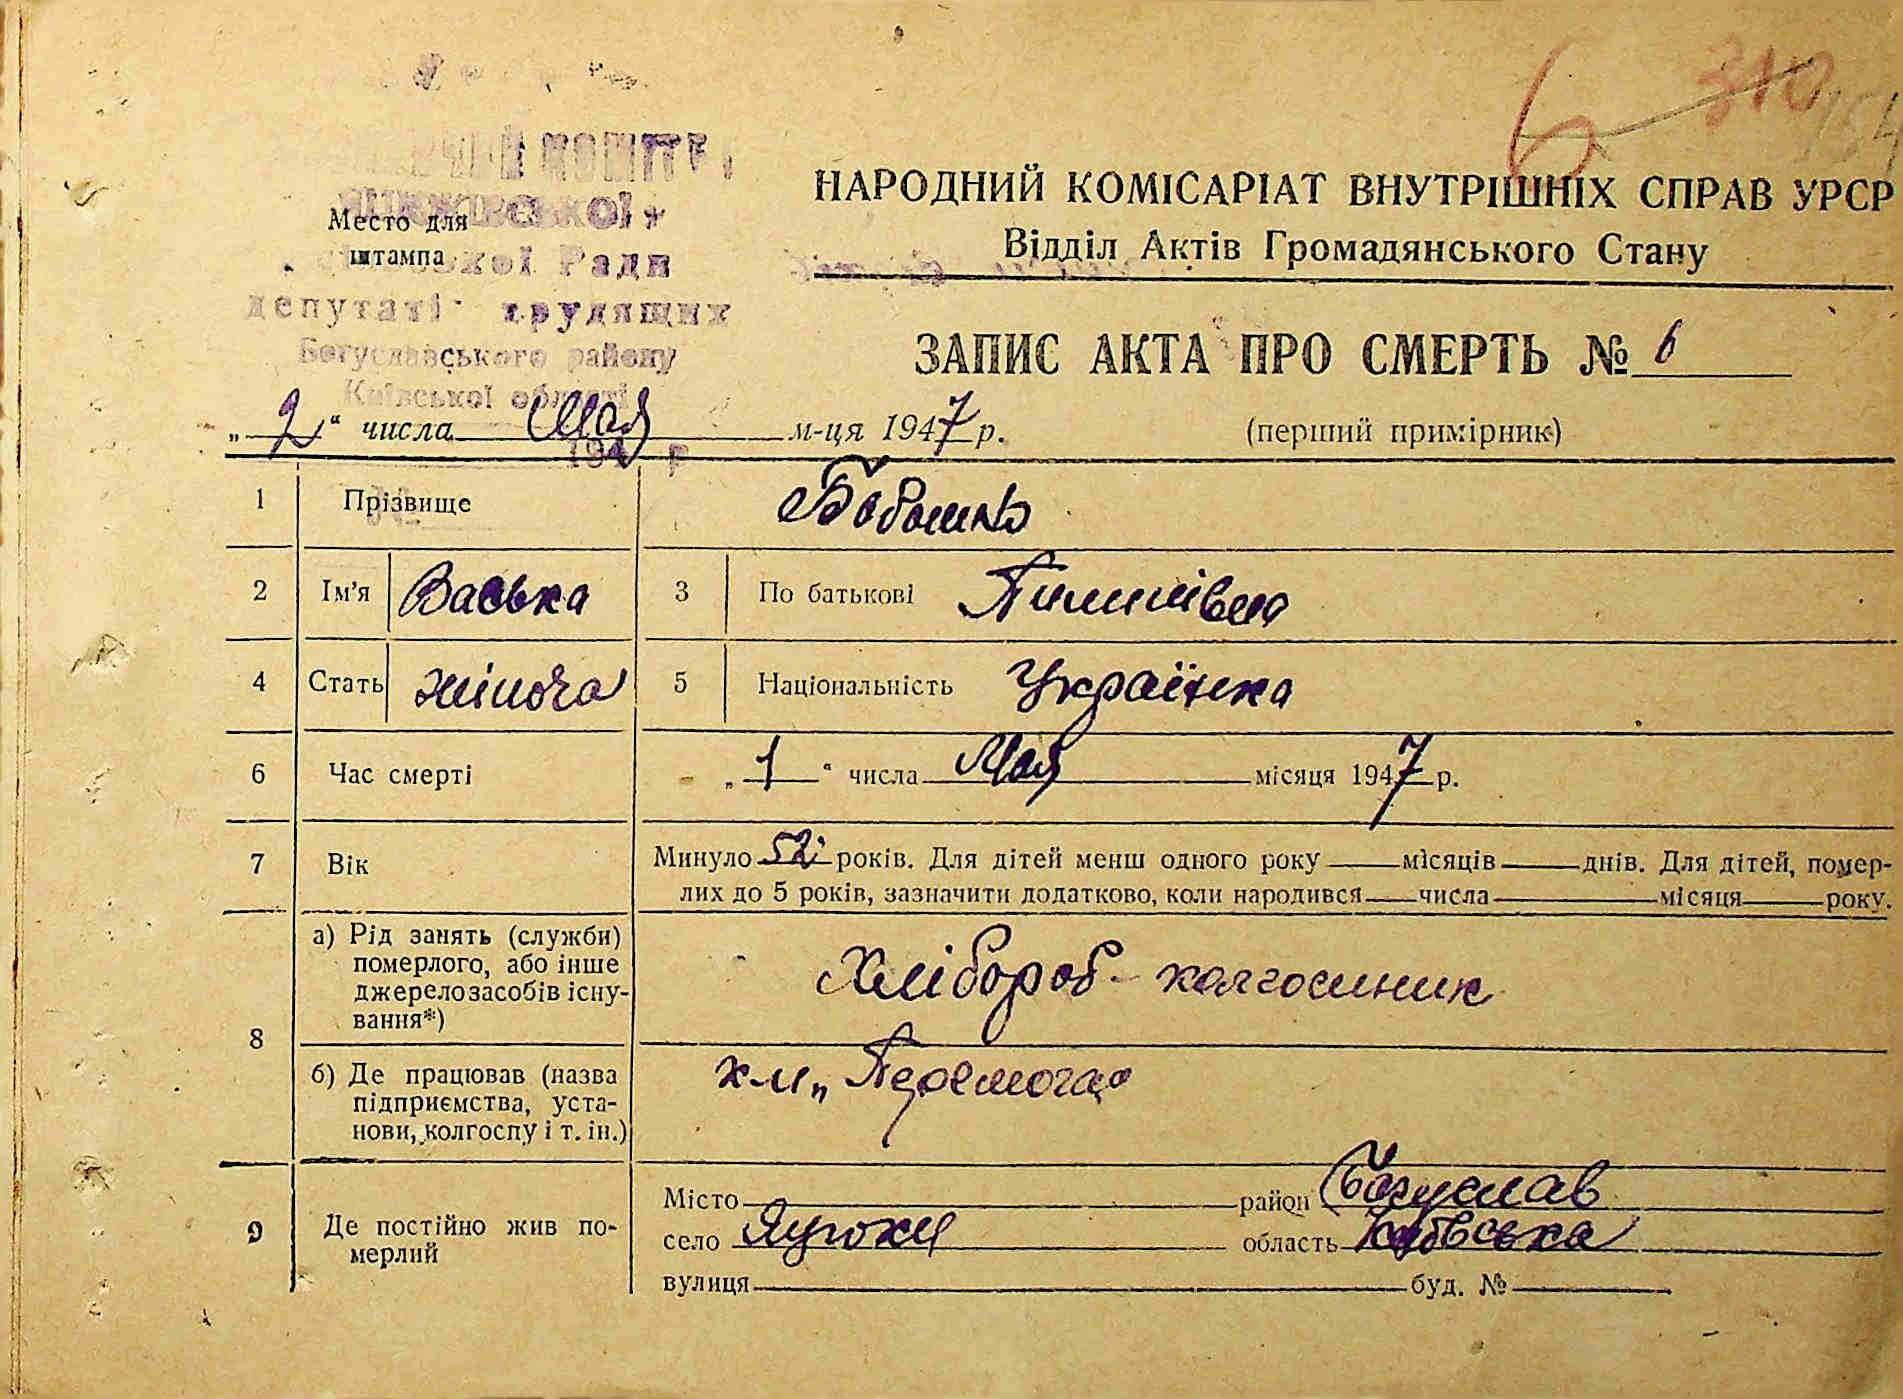 6 310
НАРОДНИЙ КОМІСАРІАТ ВНУТРІШНІХ СПРАВ УРСР
Відділ Актів Громадянського Стану
Место для
штампа
Ради
депутатів трудящих
Богуславського району
Київської області
194 р
ЗАПИС АКТА ПРО СМЕРТЬ № 6
„2“ числа Мая м-ця 1947 р. (перший примірник)
1 Прізвище
2 Ім'я Васька 3 По батькові
4 Стать жіноча 5 Національність Українка
6 Час смерті „1“ числа Мая місяця 1947 р.
7 Вік Минуло 52 років. Для дітей менш одного року місяців днів. Для дітей, помер-
лих до 5 років, зазначити додатково, коли народився числа місяця року.
8 а) Рід занять (служби)
померлого, або інше
джерело засобів існу-
вання*)
Хлібороб - колгоспник
б) Де працював (назва
підприємства, уста-
нови, колгоспу і т. ін.)
„Перемога“
9 Де постійно жив по-
мерлий
Місто район Богуслав
село область Київська
вулиця буд. №